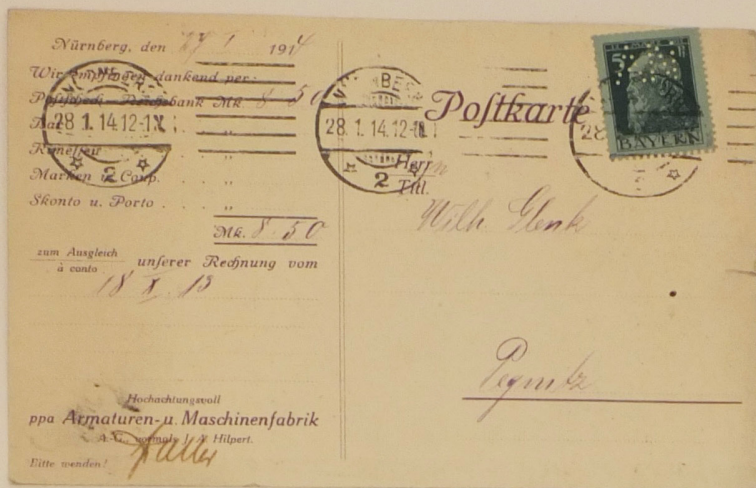 Nürnberg, den 27 I 1914
Wir empfingen dankend per:
Postscheck-Reichsbank Mk. 8 50
Bar . . . . „
Kuwelten . . „
Marken u. Coup. . „
Skonto u. Porto . . . „
Mk. 8.50
zum Ausgleich
à conto
unserer Rechnung vom
18 X 13
Hochachtungsvoll
ppa Armaturen- u. Maschinenfabrik
A.-G., vormals J. A. Hilpert.
Bitte wenden!
28.1.14.12-1N
2
28.1.14.12-1N
2
28
Postkarte
5
BAYERN
Herrn
Titl.
Wilh. Glenk
Pegnitz